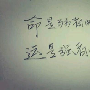 命是弱者的
运是强者